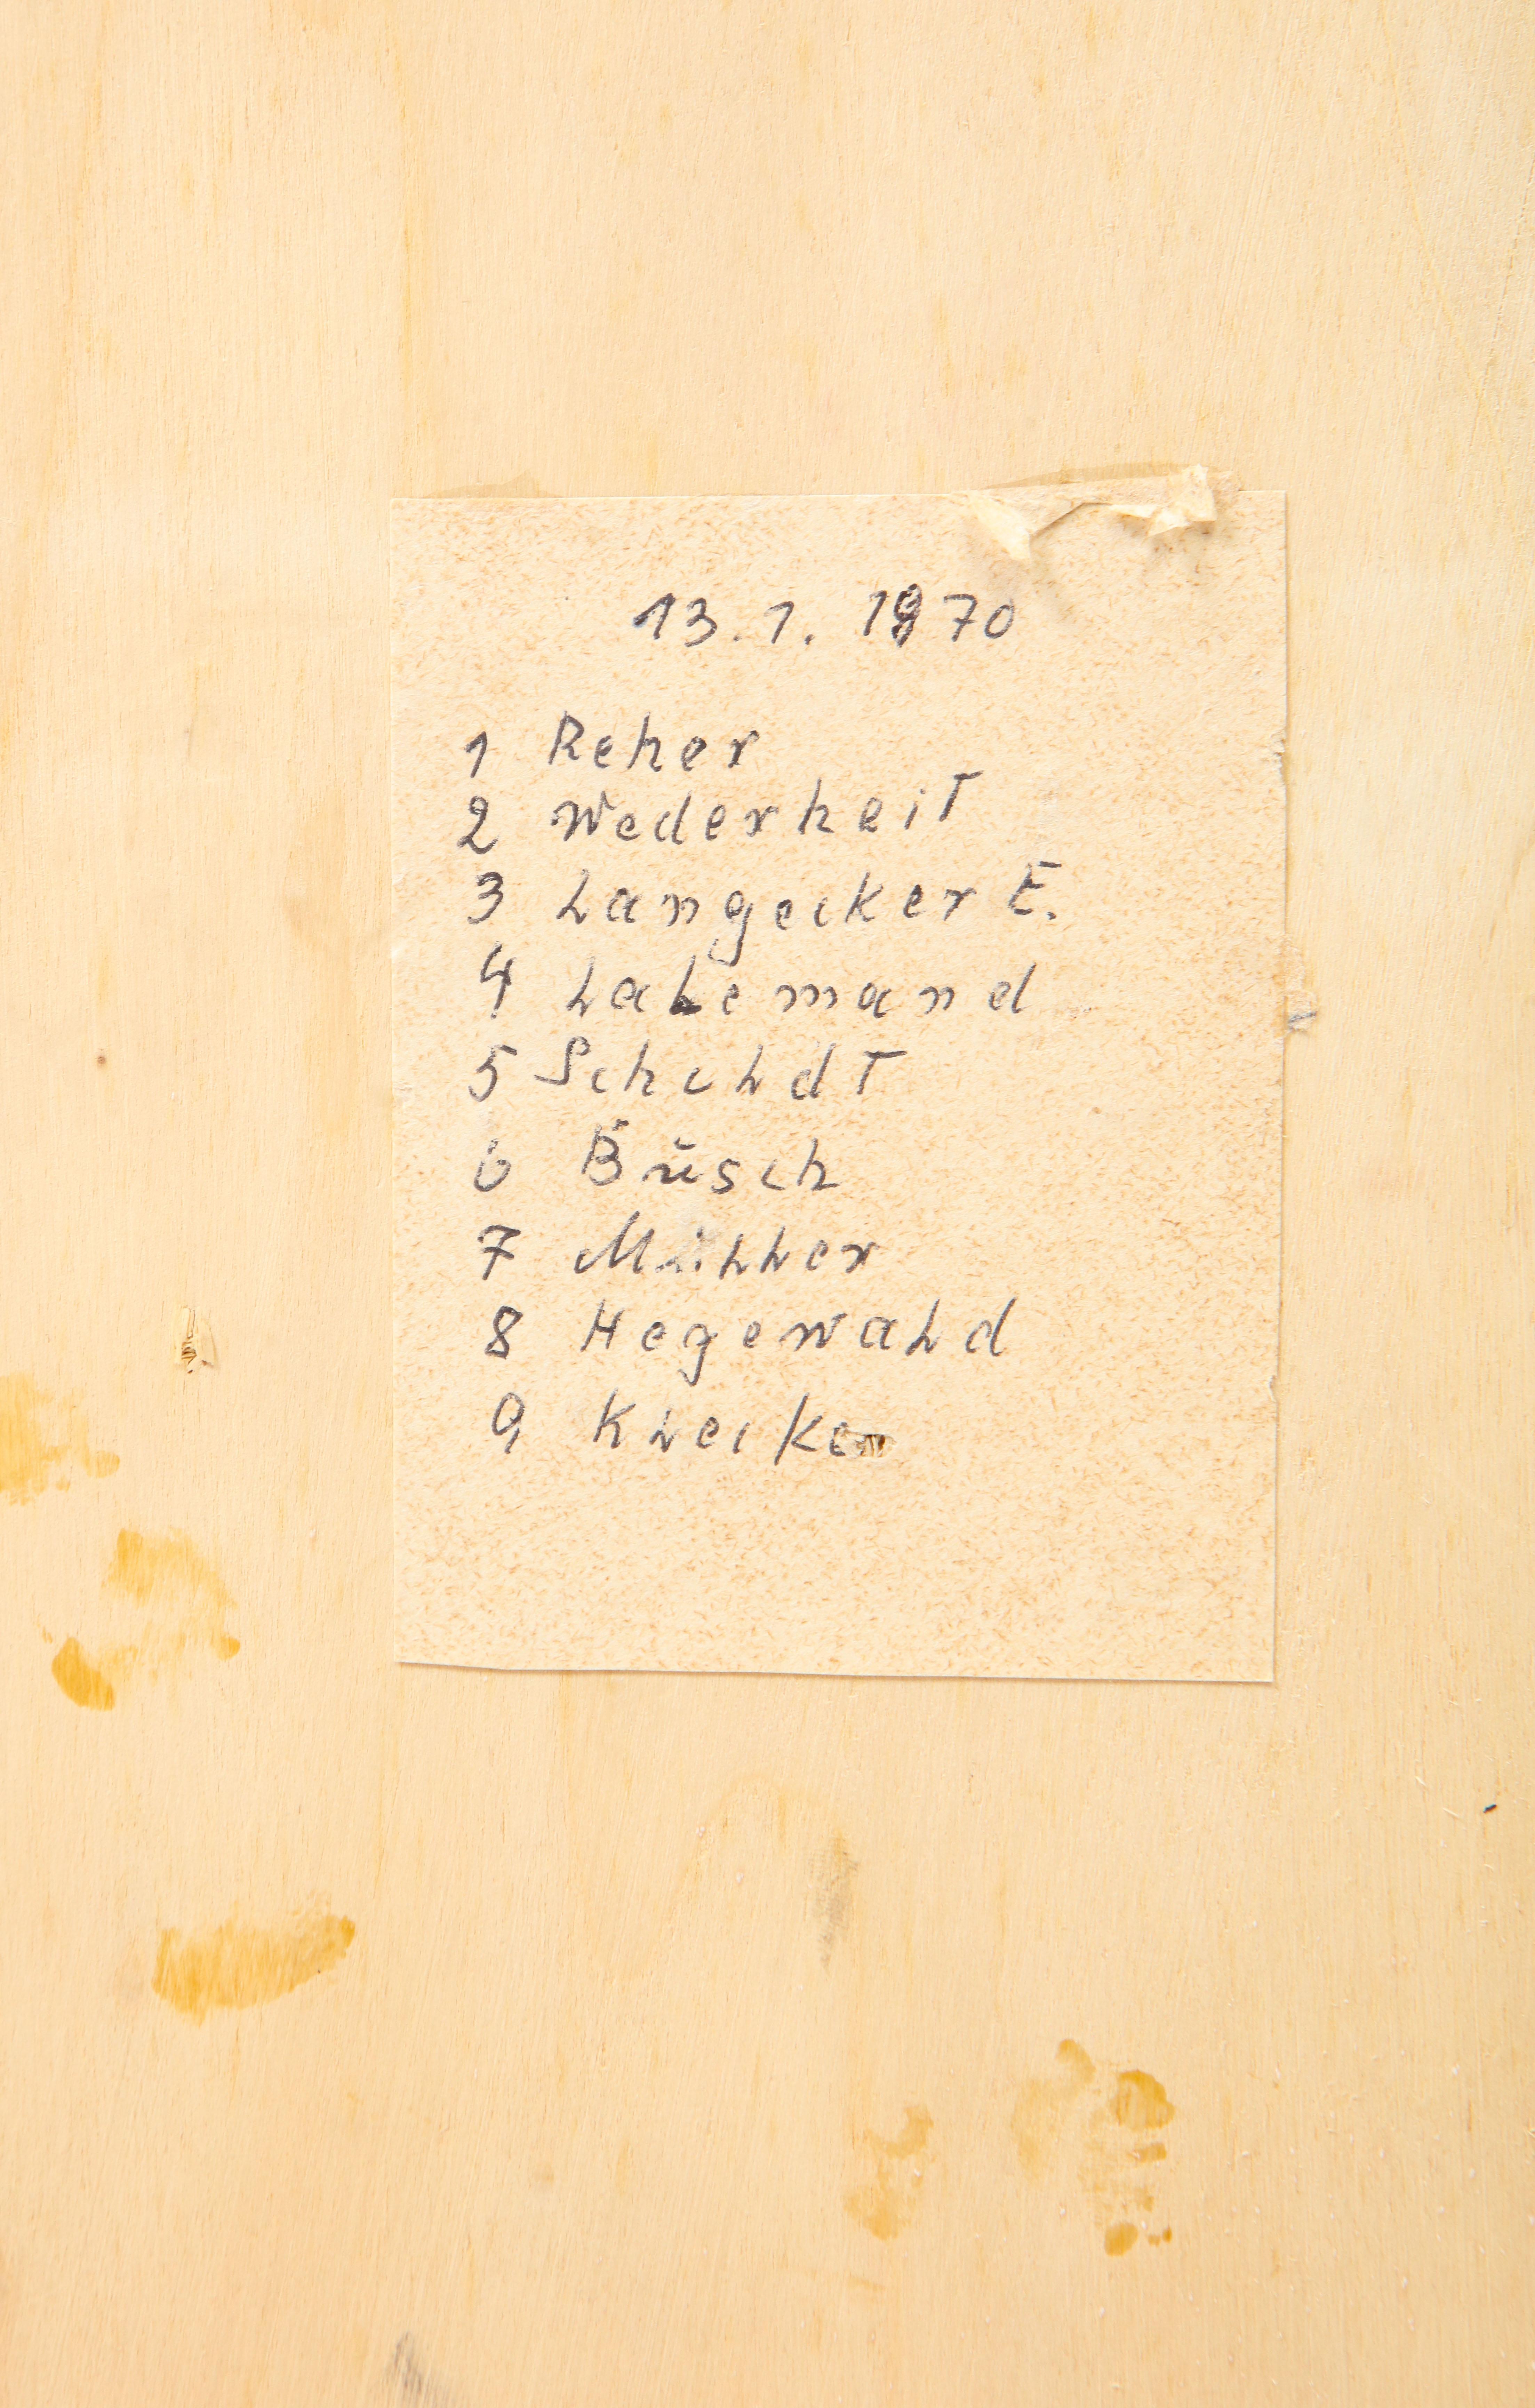 13.1.1970
1 Reher
2 Wederheit
3 Langecker E.
4 Lalemand
5 Schchldt
6 Büsch
7 Müller
8 Hegewald
9 Klecker